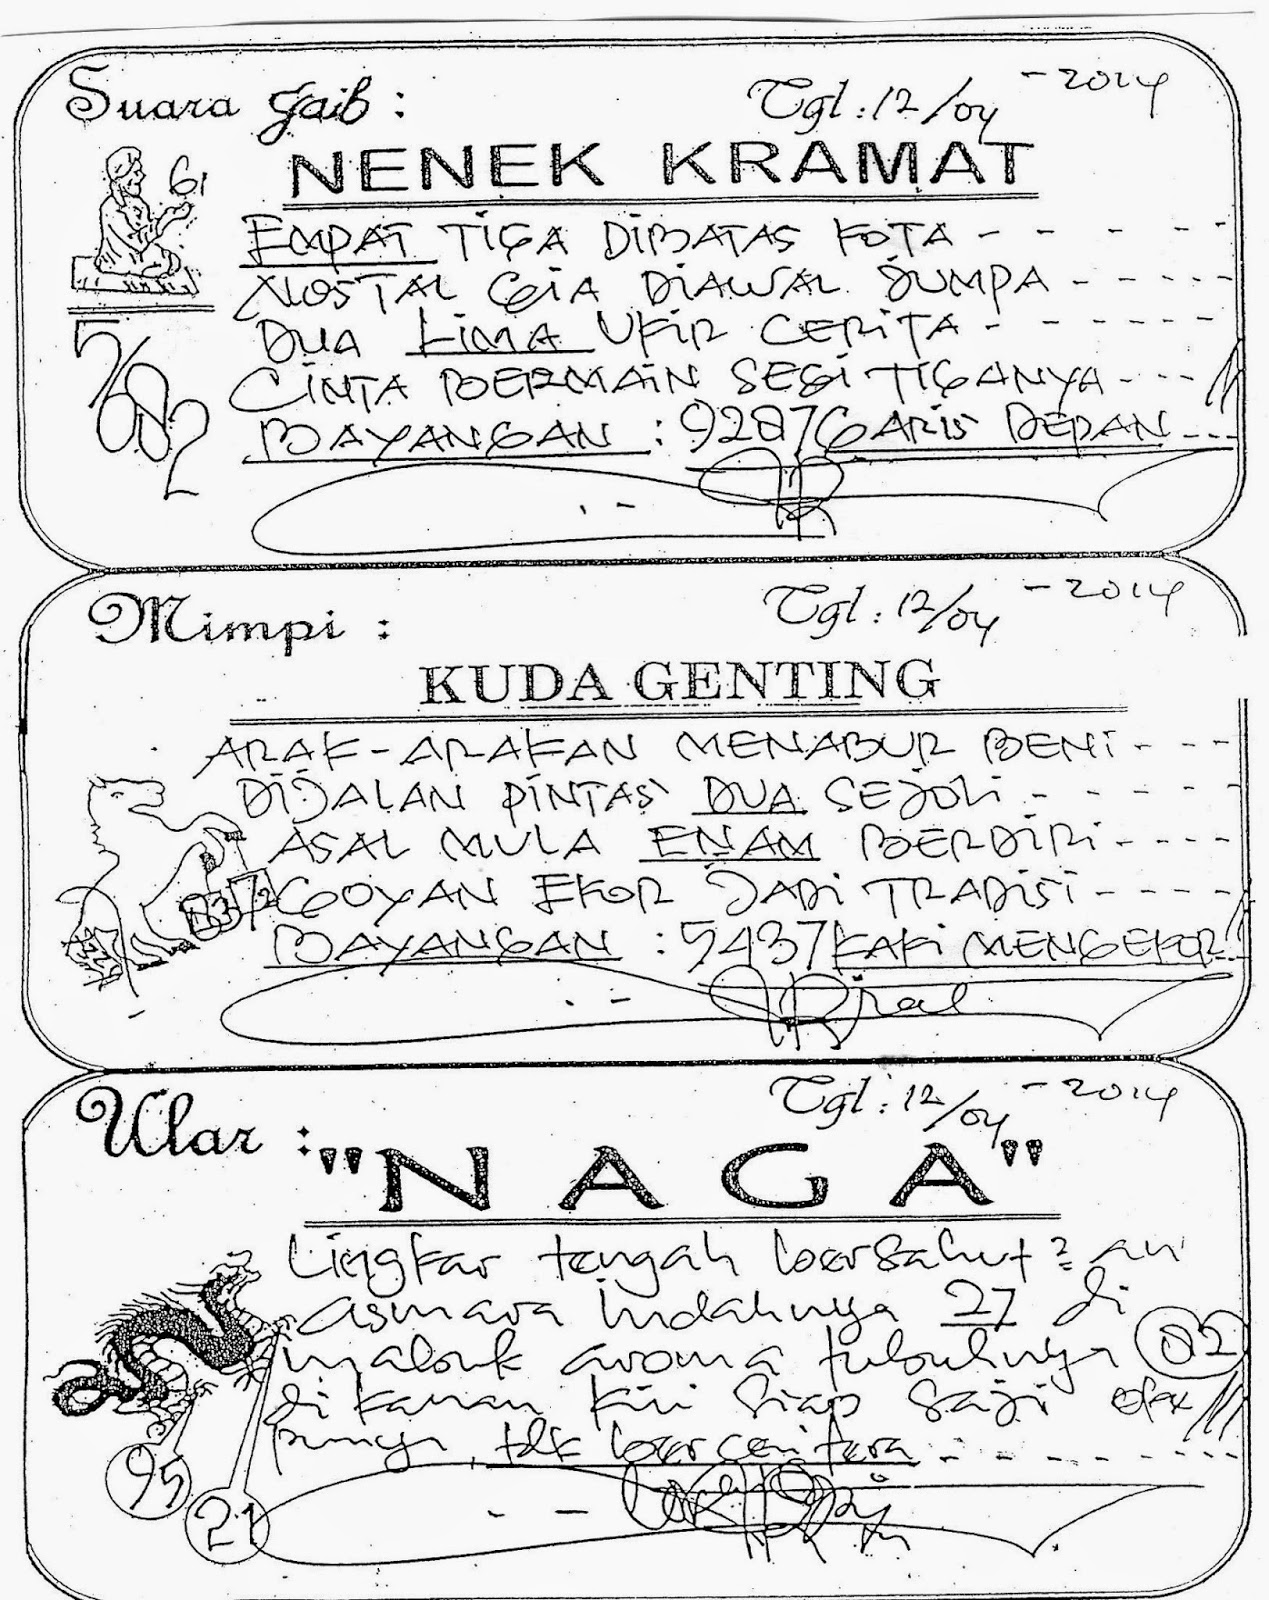 Suara Gaib :
Tgl : 12/04 - 2014
NENEK KRAMAT
61
EMPAT TIGA DIBATAS KOTA - - - - -
NOSTAL GIA DIAWAL JUMPA - - - - -
DUA LIMA UKIR CERITA - - - - - -
CINTA BERMAIN SEGI TIGANYA - - - -
BAYANGAN : 9287 GARIS DEPAN - - -
5/682
Mimpi :
Tgl : 12/04 - 2014
KUDA GENTING
ARAK-ARAKAN MENABUR BENI - - - -
DIJALAN PINTAS DUA SEJOLI - - - - -
ASAL MULA ENAM BERDIRI - - - - -
GOYAN EKOR JADI TRADISI - - - -
BAYANGAN : 5437 KAKI MENGEKOR
Ular :
Tgl : 12/04 - 2014
"NAGA"
Lingkar tengah bersahut2 an
asmara indahnya 27 di
mabuk aroma tubuhnya 02
di kanan kiri siap saji
punya, tdk berceritera - - - - - -
95
21